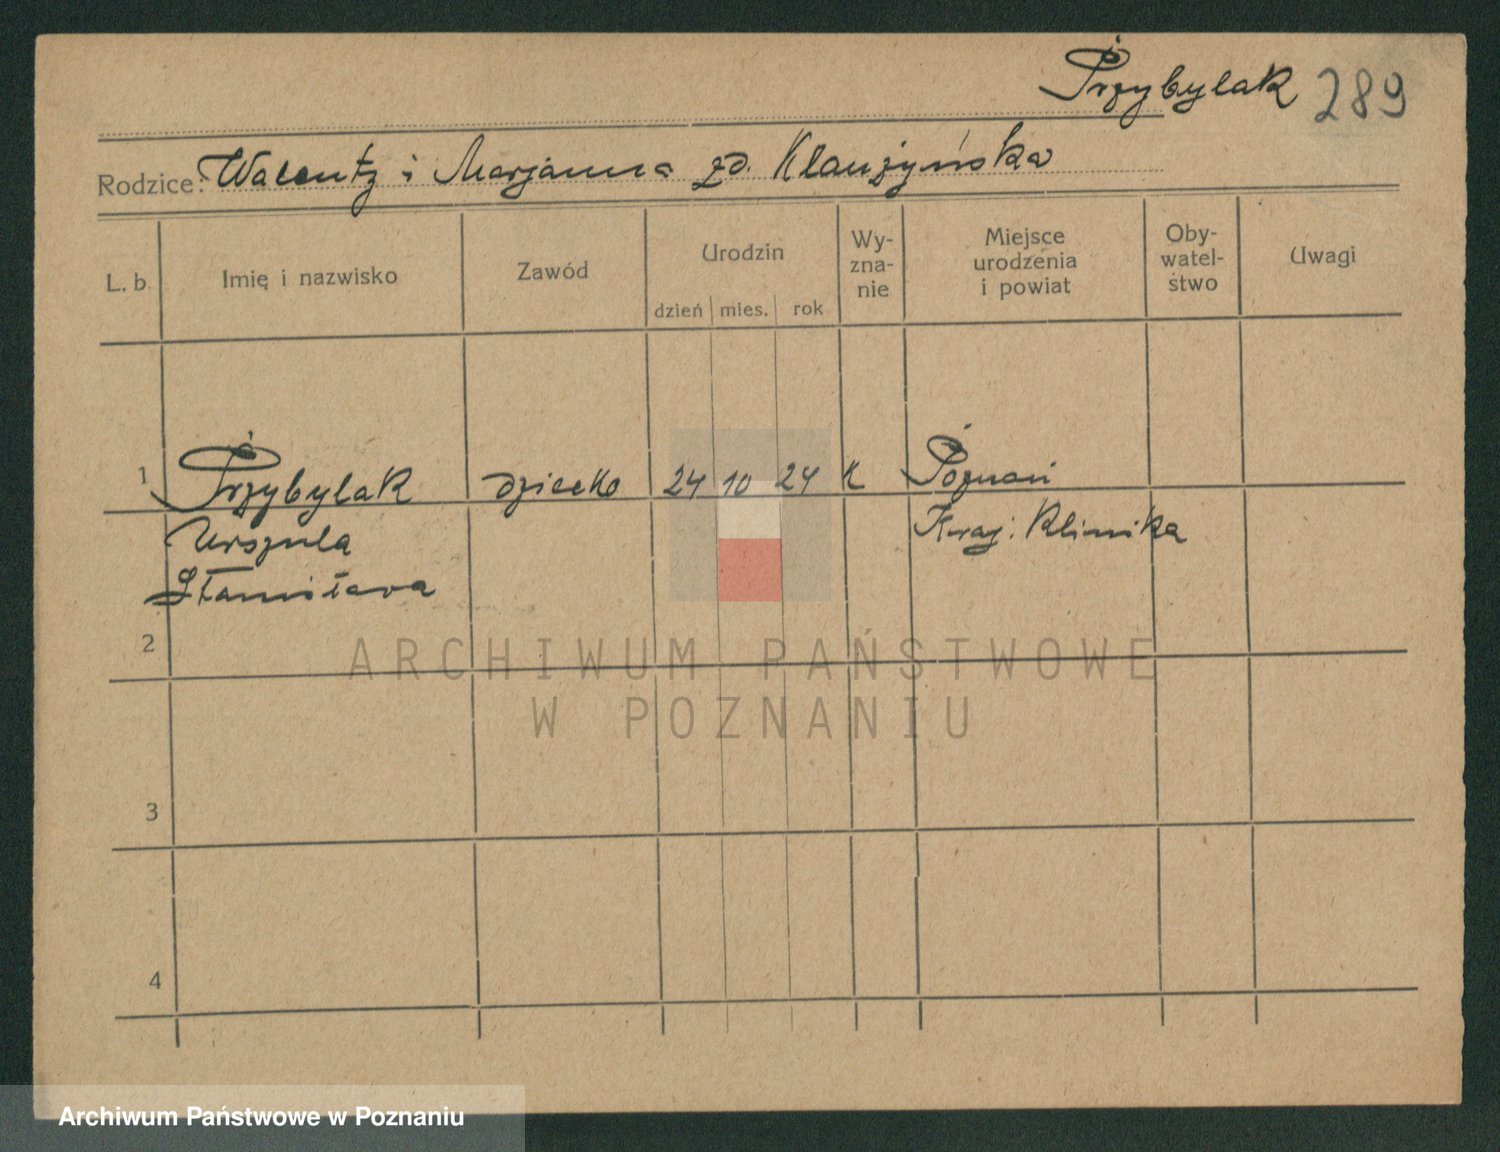 Przybylak 289
Rodzice: Walenty i Marjanna zd. Klauzyńska
L. b. Imię i nazwisko Zawód Urodzin dzień mies. rok Wy-zna-nie Miejsce urodzenia i powiat Oby-watel-stwo Uwagi
1 Przybylak dziecko 24 10 24 K Poznań
Urszula Kraj. Klinika
Stanisława
2
ARCHIWUM PAŃSTWOWE
W POZNANIU
3
4
Archiwum Państwowe w Poznaniu